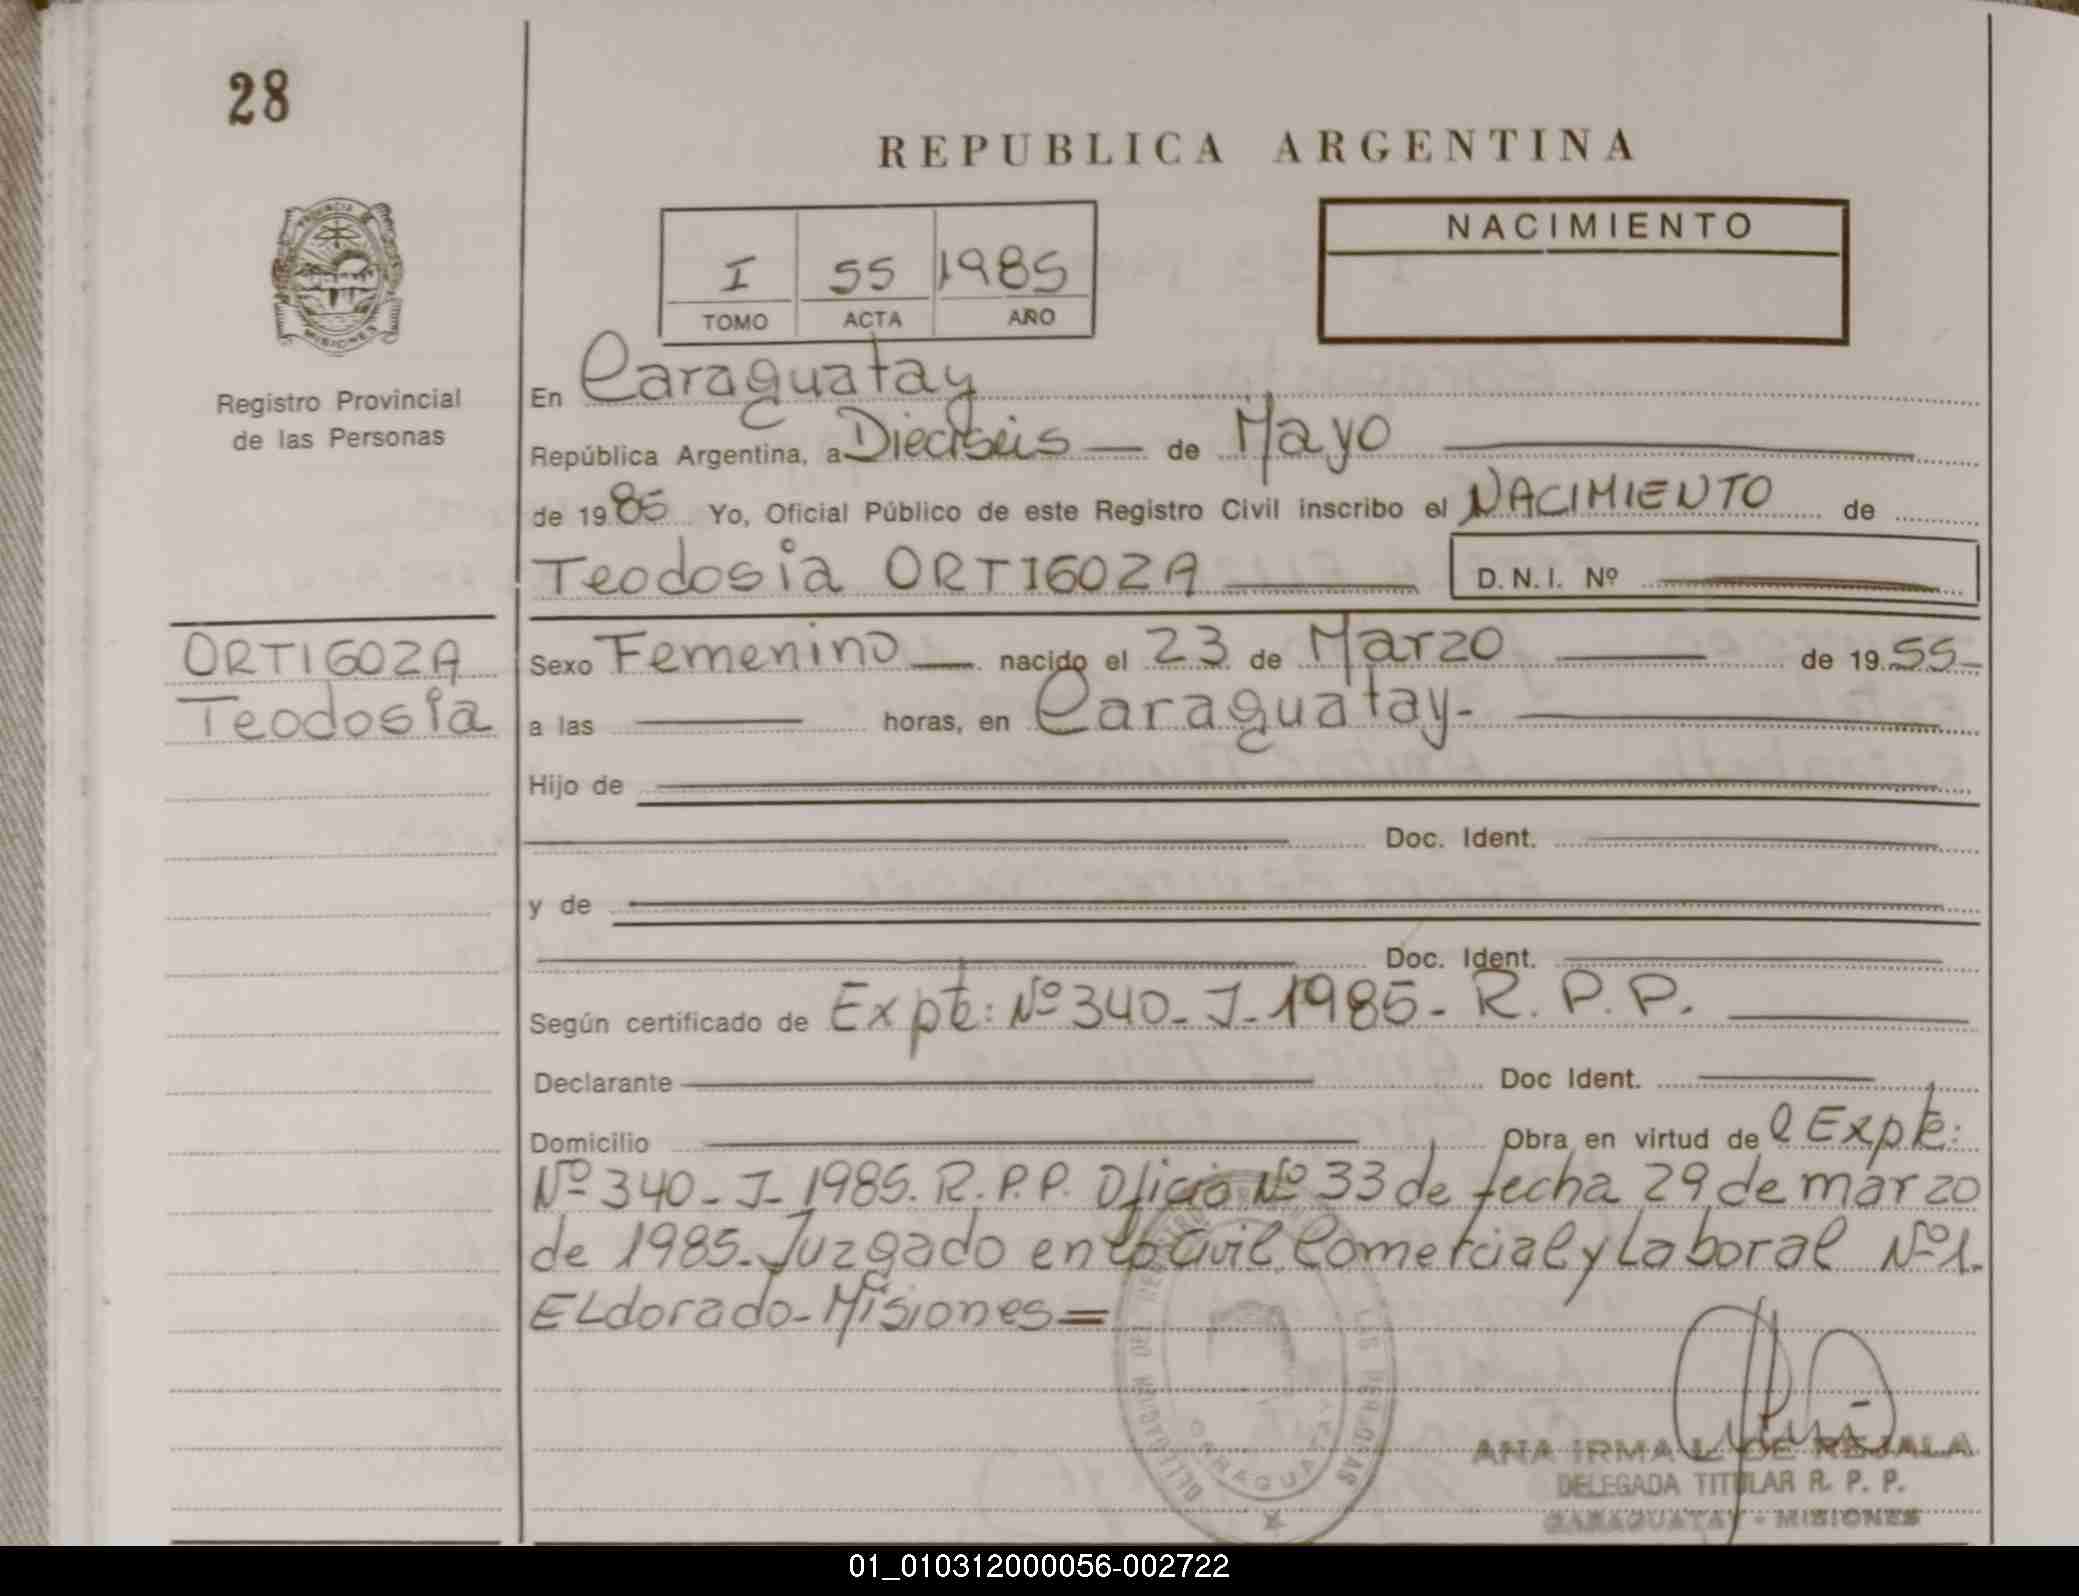 28
REPUBLICA ARGENTINA
NACIMIENTO
I 55 1985
TOMO ACTA AÑO
PROVINCIA DE
MISIONES
Registro Provincial
de las Personas
En Caraguatay
República Argentina, a Dieciseis — de Mayo
de 1985 Yo, Oficial Público de este Registro Civil inscribo el NACIMIENTO de
Teodosia ORTIGOZA D.N.I. Nº
ORTIGOZA
Teodosia
Sexo Femenino — nacido el 23 de Marzo de 1955-
a las horas, en Caraguatay-
Hijo de
Doc. Ident.
y de
Doc. Ident.
Según certificado de Expte: Nº 340-J-1985- R.P.P.
Declarante Doc Ident.
Domicilio Obra en virtud de l Expte:
Nº 340-J-1985. R.P.P. Oficio Nº 33 de fecha 29 de marzo
de 1985-Juzgado en lo Civil, Comercial y Laboral Nº1.
ELdorado-Misiones=
DELEGACION DEL REGISTRO LAS PERSONAS
CARAGUATAY
ANA IRMA L. DE REJALA
DELEGADA TITULAR R. P. P.
CARAGUATAY - MISIONES
01_010312000056-002722